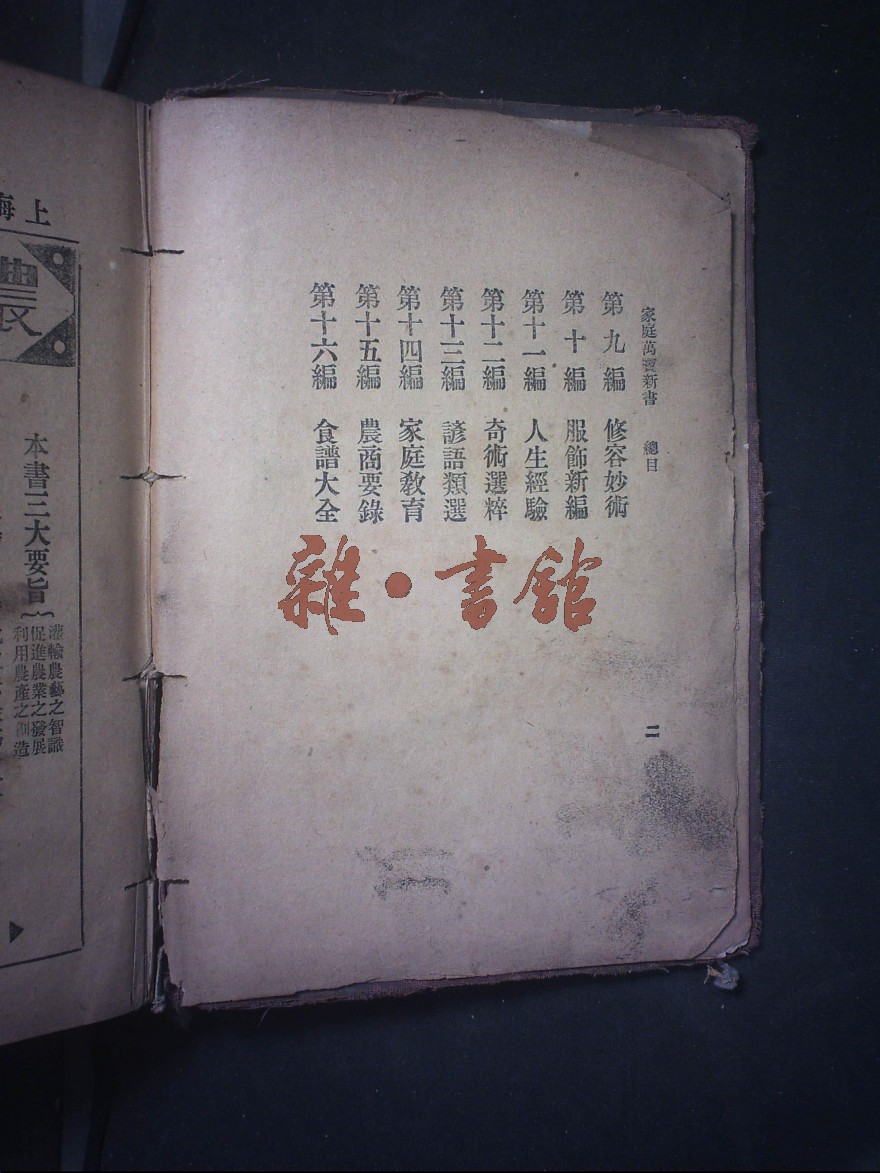 家庭萬寶新書 總目
第九編 修容妙術
第十編 服飾新編
第十一編 人生經驗
第十二編 奇術選粹
第十三編 諺語類選
第十四編 家庭教育
第十五編 農商要錄
第十六編 食譜大全
二
雜·書館
上海
農
本書三大要旨
灌輸農藝之智識
促進農業之發展
利用農產之製造